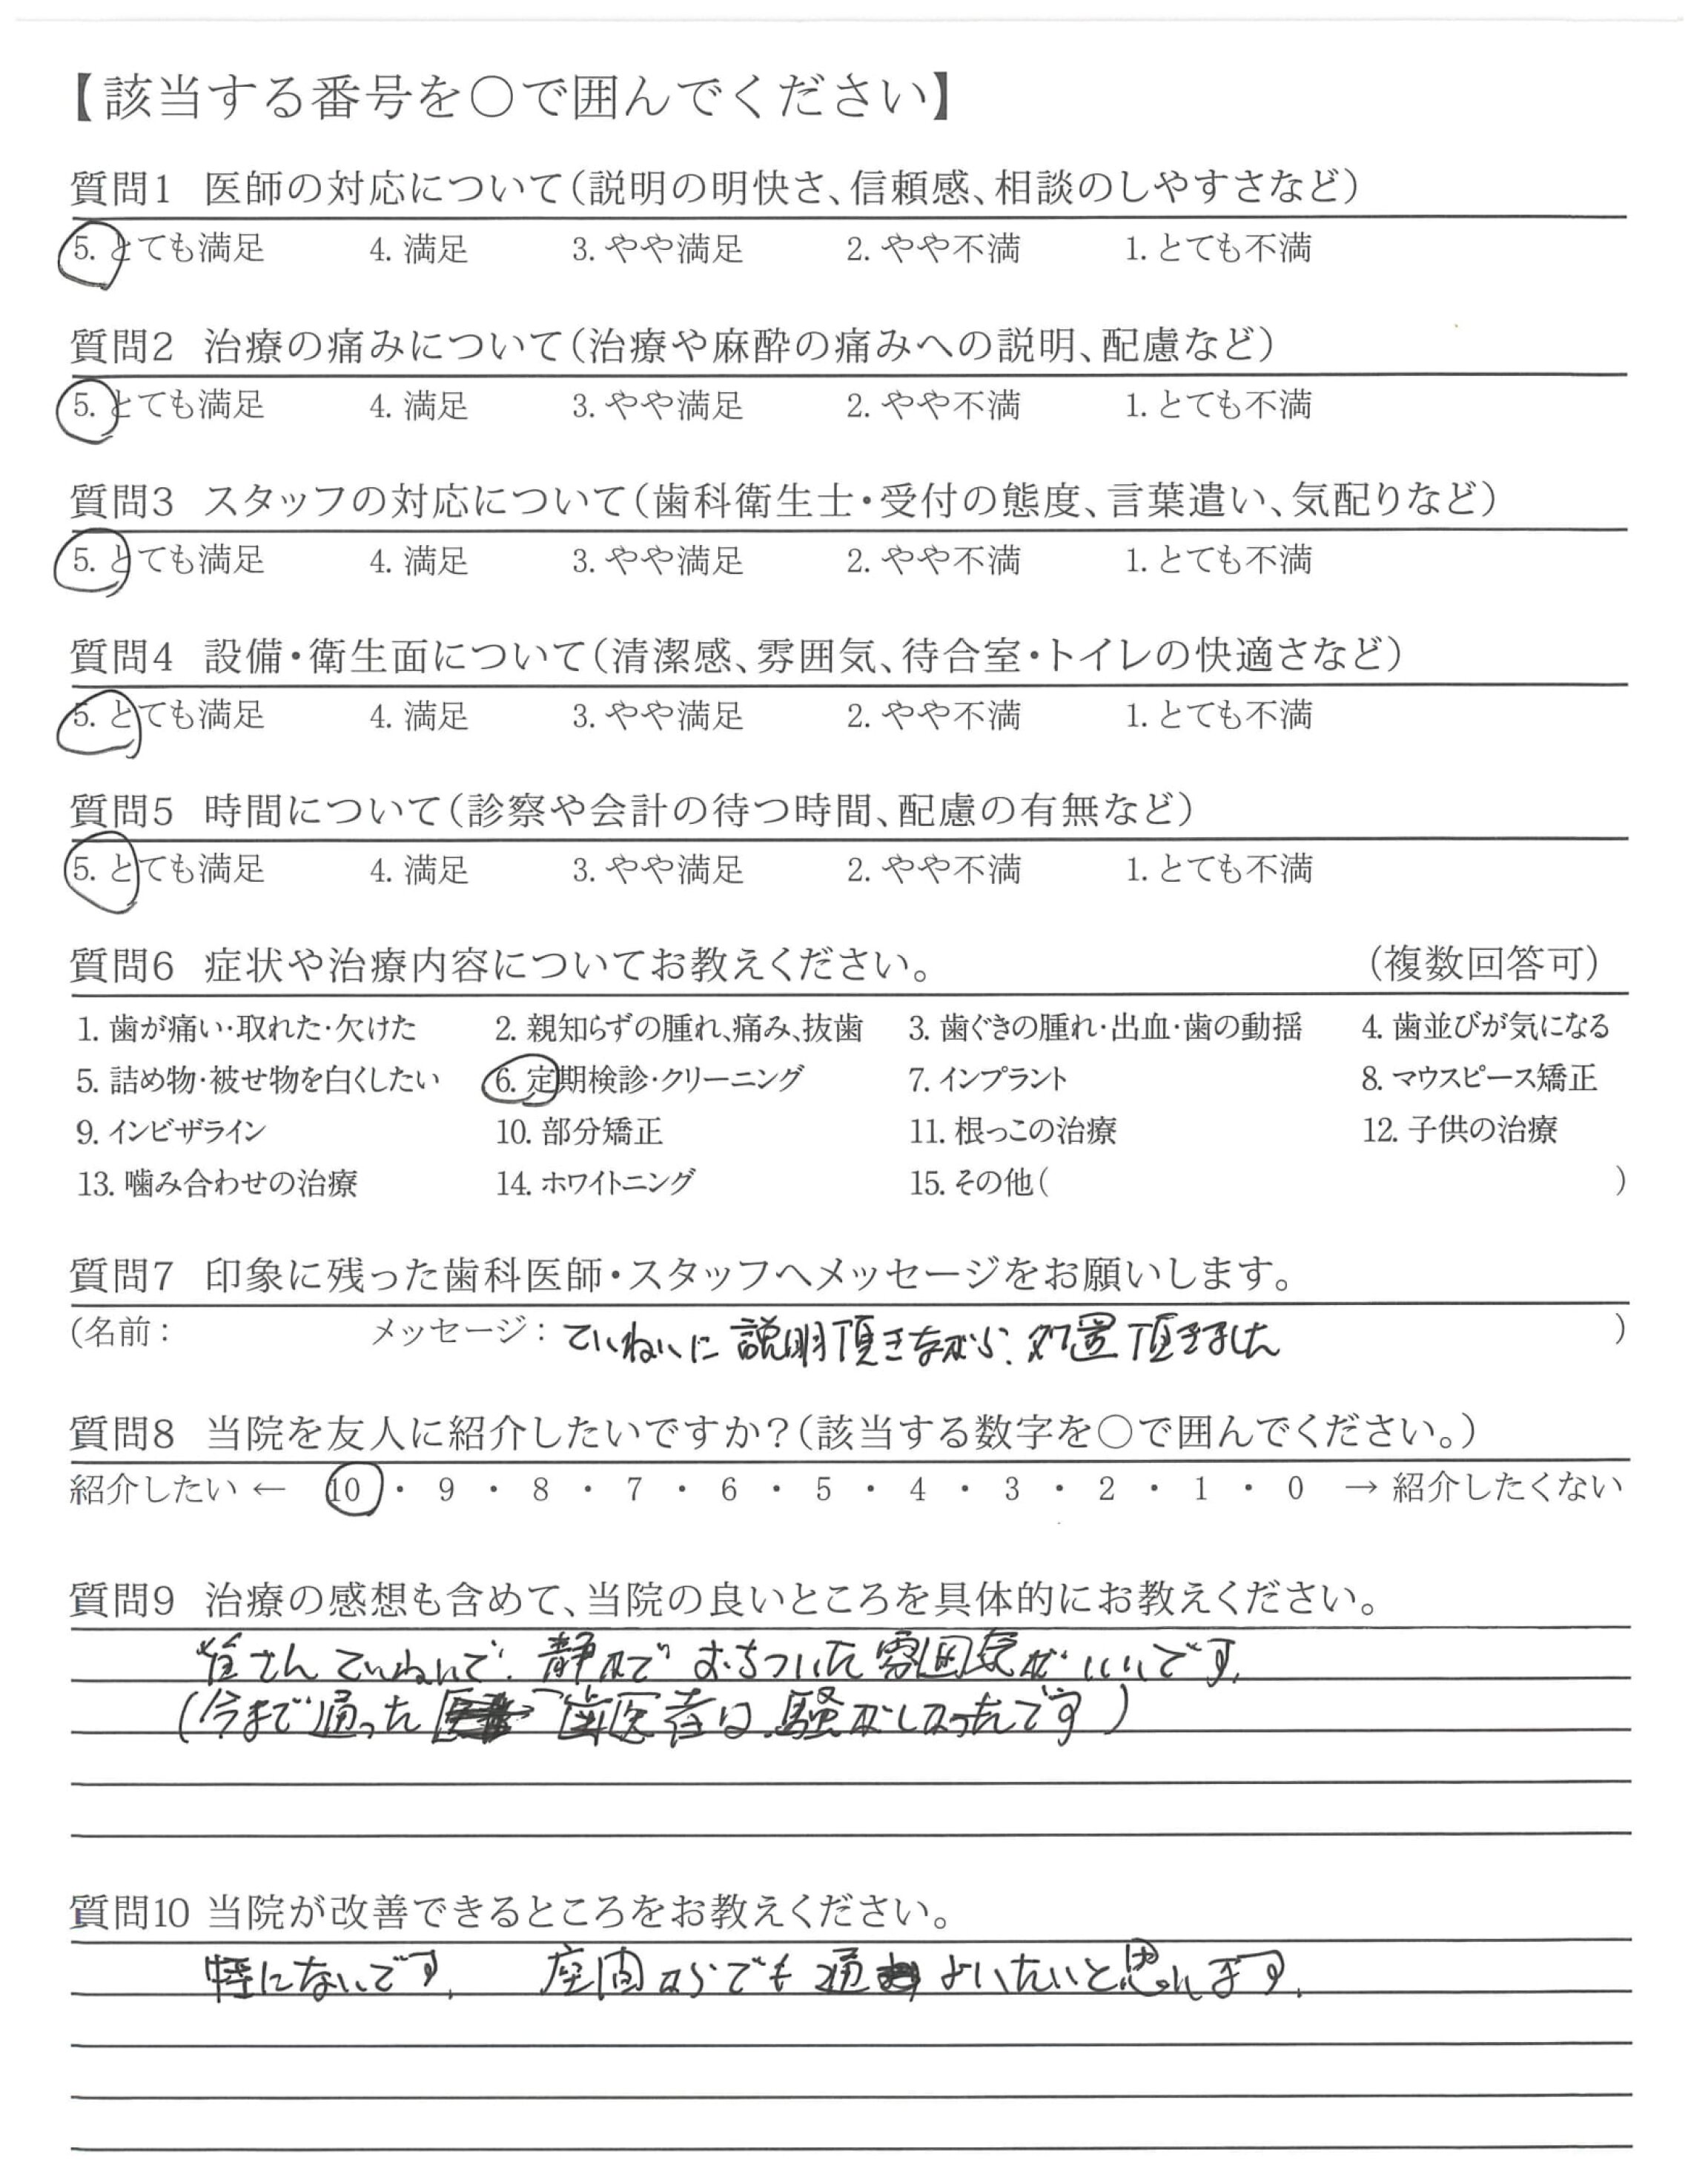 【該当する番号を〇で囲んでください】
質問1 医師の対応について(説明の明快さ、信頼感、相談のしやすさなど)
5. とても満足 4. 満足 3. やや満足 2. やや不満 1. とても不満
質問2 治療の痛みについて(治療や麻酔の痛みへの説明、配慮など)
5. とても満足 4. 満足 3. やや満足 2. やや不満 1. とても不満
質問3 スタッフの対応について(歯科衛生士・受付の態度、言葉遣い、気配りなど)
5. とても満足 4. 満足 3. やや満足 2. やや不満 1. とても不満
質問4 設備・衛生面について(清潔感、雰囲気、待合室・トイレの快適さなど)
5. とても満足 4. 満足 3. やや満足 2. やや不満 1. とても不満
質問5 時間について(診察や会計の待つ時間、配慮の有無など)
5. とても満足 4. 満足 3. やや満足 2. やや不満 1. とても不満
質問6 症状や治療内容についてお教えください。 (複数回答可)
1. 歯が痛い・取れた・欠けた 2. 親知らずの腫れ、痛み、抜歯 3. 歯ぐきの腫れ・出血・歯の動揺 4. 歯並びが気になる
5. 詰め物・被せ物を白くしたい 6. 定期検診・クリーニング 7. インプラント 8. マウスピース矯正
9. インビザライン 10. 部分矯正 11. 根っこの治療 12. 子供の治療
13. 噛み合わせの治療 14. ホワイトニング 15. その他( )
質問7 印象に残った歯科医師・スタッフへメッセージをお願いします。
(名前: メッセージ: ていねいに説明頂きながら、処置頂きました )
質問8 当院を友人に紹介したいですか?(該当する数字を〇で囲んでください。)
紹介したい ← 10 ・ 9 ・ 8 ・ 7 ・ 6 ・ 5 ・ 4 ・ 3 ・ 2 ・ 1 ・ 0 → 紹介したくない
質問9 治療の感想も含めて、当院の良いところを具体的にお教えください。
皆さんていねいで、静かでおちついた雰囲気がいいです。
(今まで通った歯医者は騒がしかったです)
質問10 当院が改善できるところをお教えください。
特にないです。 座間からでも通よいたいと思います。